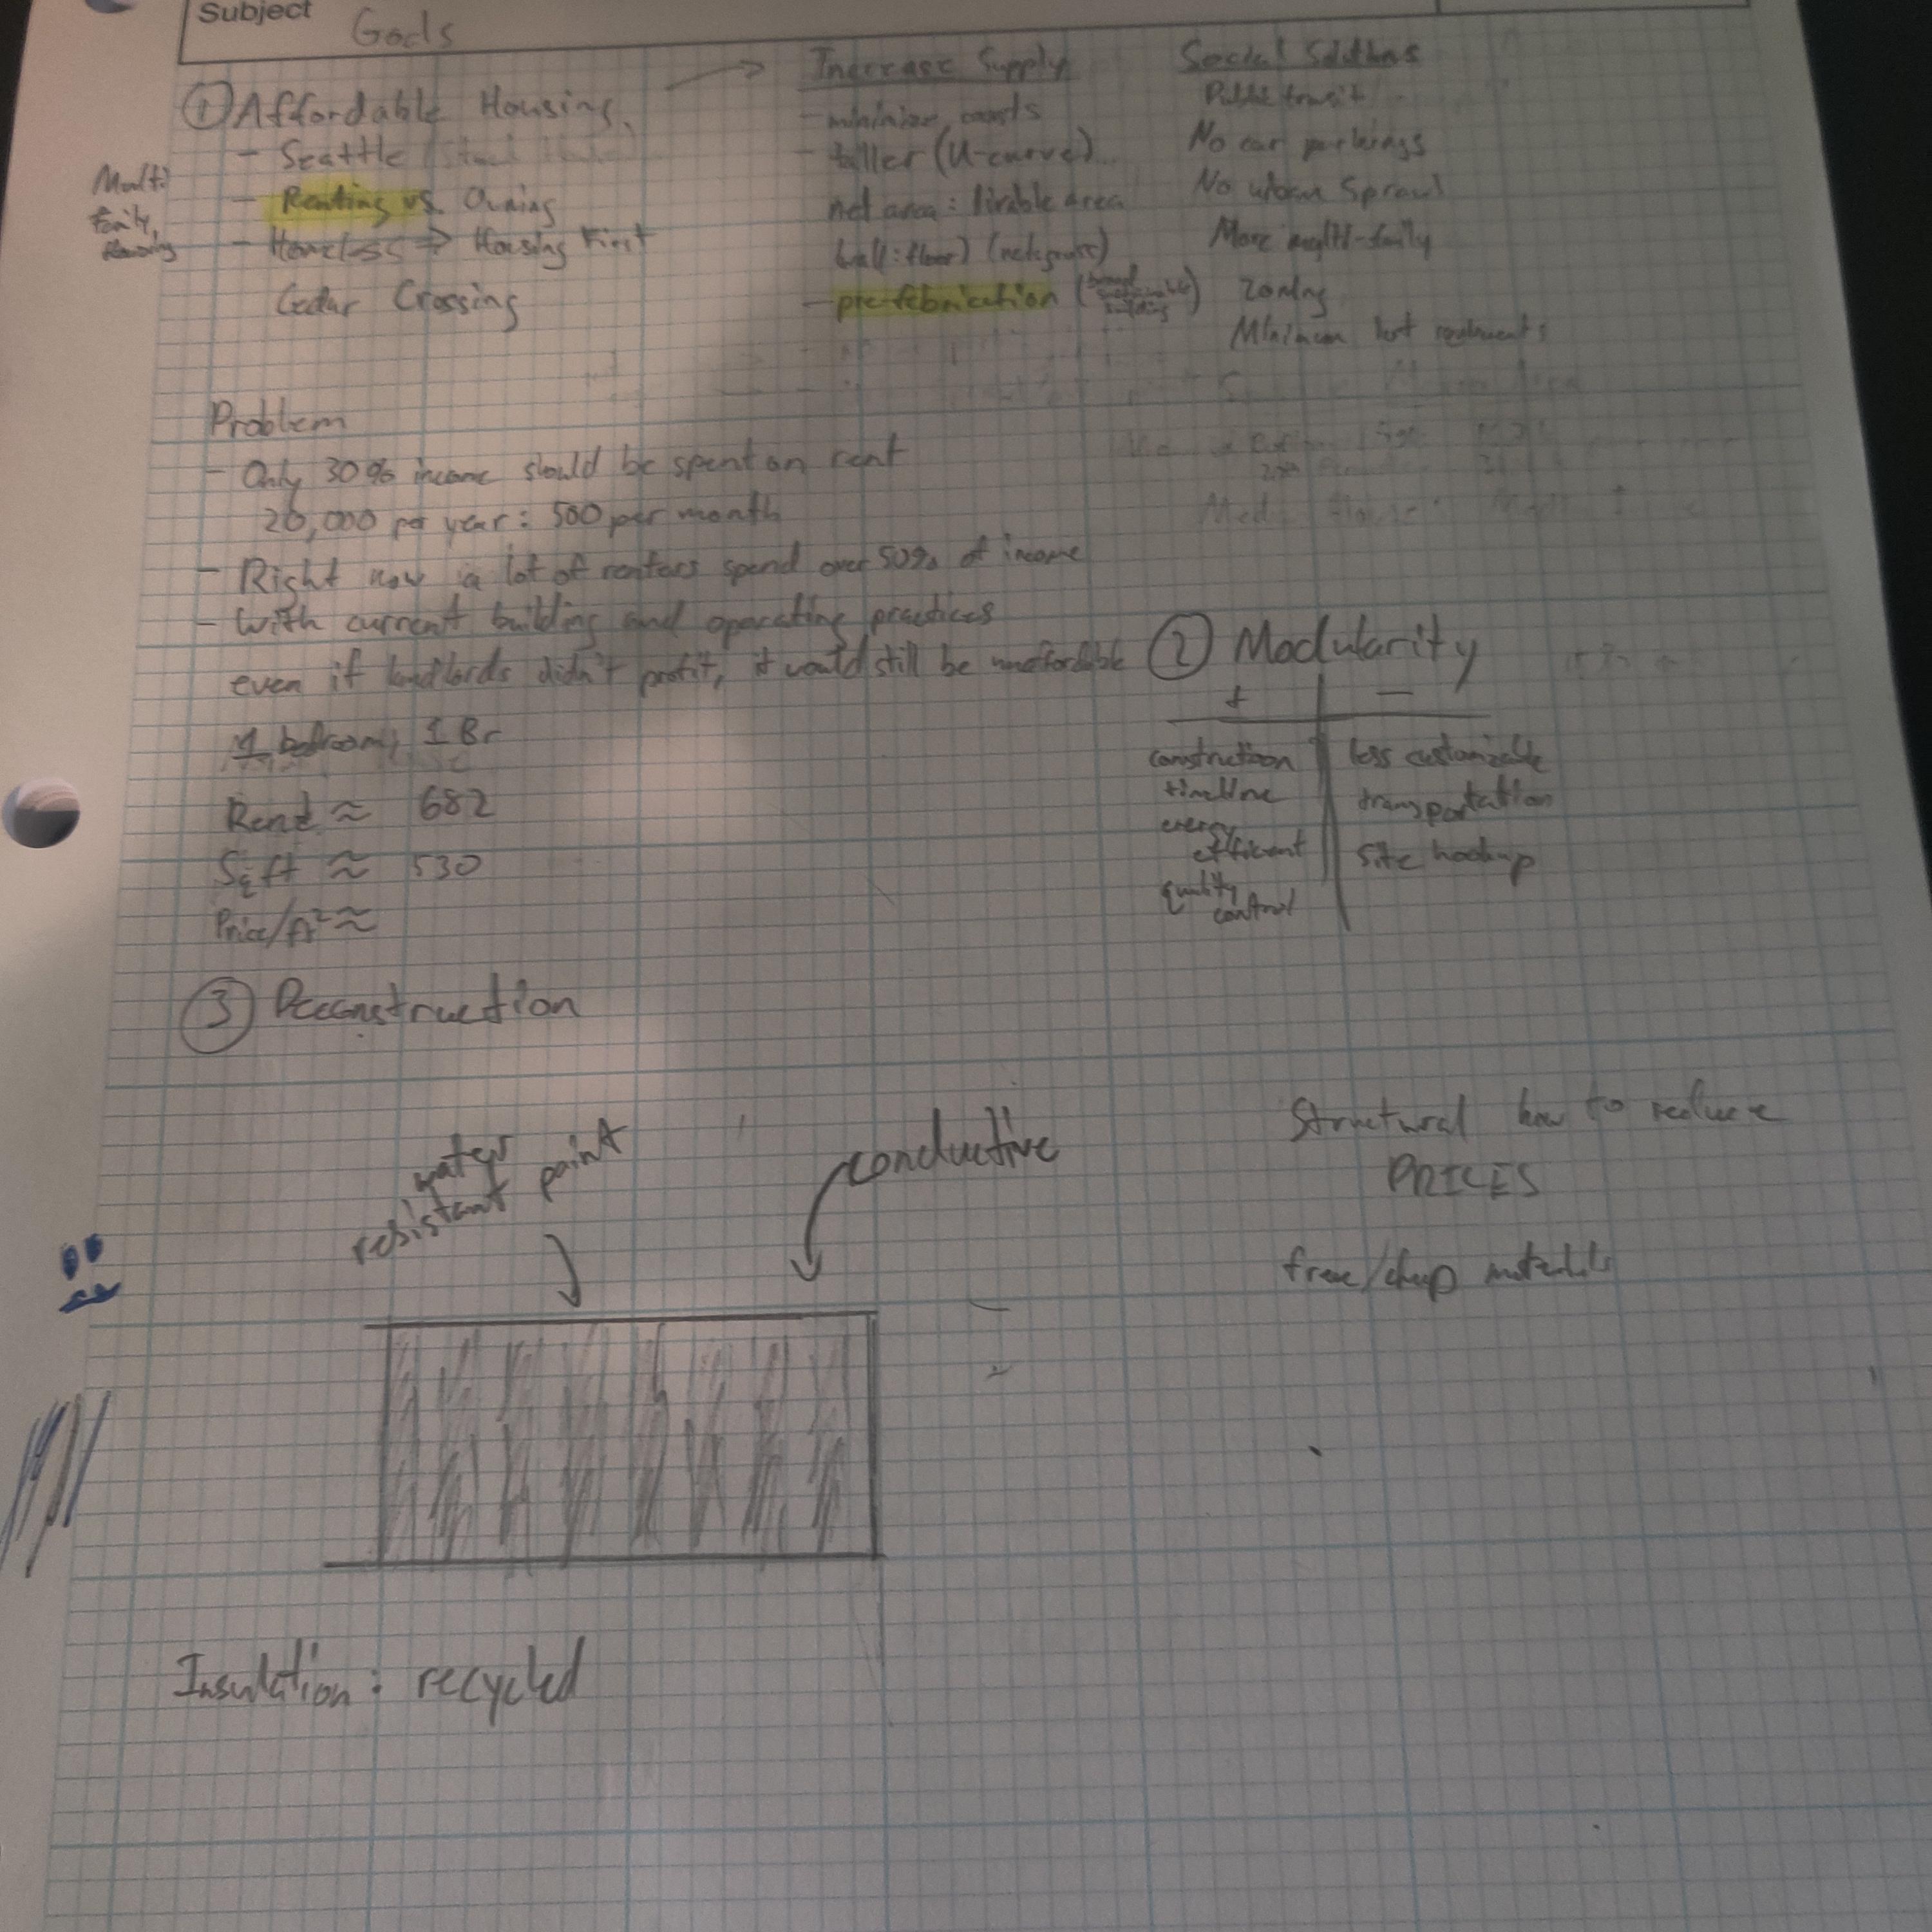 Subject
Goals
① Affordable Housing
- Seattle
- Renting vs. Owning
- Homeless ⇒ Housing First
Cedar Crossing
Multi
family
Housing
→ Increase Supply
- minimize costs
- taller (U-curve)
net area : livable area
wall : floor) (net:gross)
- pre-fabrication
Social Solutions
Public transit
No car parkings
No urban sprawl
More multi-family
zoning
Minimum lot requirements
Problem
- Only 30% income should be spent on rent
20,000 per year : 500 per month
- Right now a lot of renters spend over 50% of income
- With current building and operating practices
even if landlords didn't profit, it would still be unaffordable
1 bedroom, 1 Br
Rent ≈ 682
Sq ft ≈ 530
Price/ft² ≈
② Modularity
+ | -
construction
timeline
energy
efficient
quality
control
less customizable
transportation
site hookup
③ Deconstruction
water
resistant paint
conductive
Structural how to reduce
PRICES
free/cheap materials
Insulation : recycled